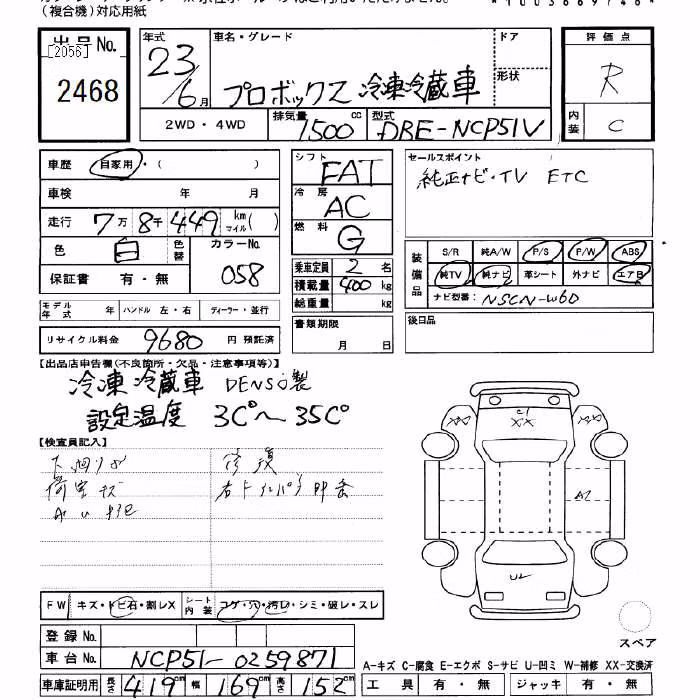 (複合機)対応用紙
出品No.
[2056]
2468
年式 23/6月
車名・グレード プロボックス 冷凍冷蔵車
ドア
形状
2WD・4WD
排気量 1500cc
型式 DBE-NCP51V
評価点 R
内装 C
車歴 自家用・( )
車検 年 月
走行 7万8千449km マイル( )
色 白 色替 カラーNo. 058
保証書 有・無
シフト FAT
冷房 AC
燃料 G
乗車定員 2名
積載量 400kg
総重量 kg
セールスポイント
純正ナビ・TV ETC
装備品 S/R 純A/W P/S P/W ABS
純TV 純ナビ 革シート 外ナビ エアB
ナビ型番: NSCN-W60
モデル年式 年 ハンドル 左・右 ディーラー・並行
リサイクル料金 9680円 預託済
書類期限 月 日
後日品
【出品店申告欄(不良箇所・欠品・注意事項等)】
冷凍冷蔵車 DENSO製
設定温度 3C°~35C°
【検査員記入】
下廻りサビ 修復
荷室キズ
XX
A2
FW キズ・トビ石・割レX シート内装 コゲ・穴・汚レ・シミ・破レ・スレ
登録No.
車台No. NCP51-0259871
車庫証明用 長さ 419cm 幅 169cm 高さ 152cm
スペア
A-キズ C-腐食 E-エクボ S-サビ U-凹ミ W-補修 XX-交換済
工具 有・無 ジャッキ 有・無